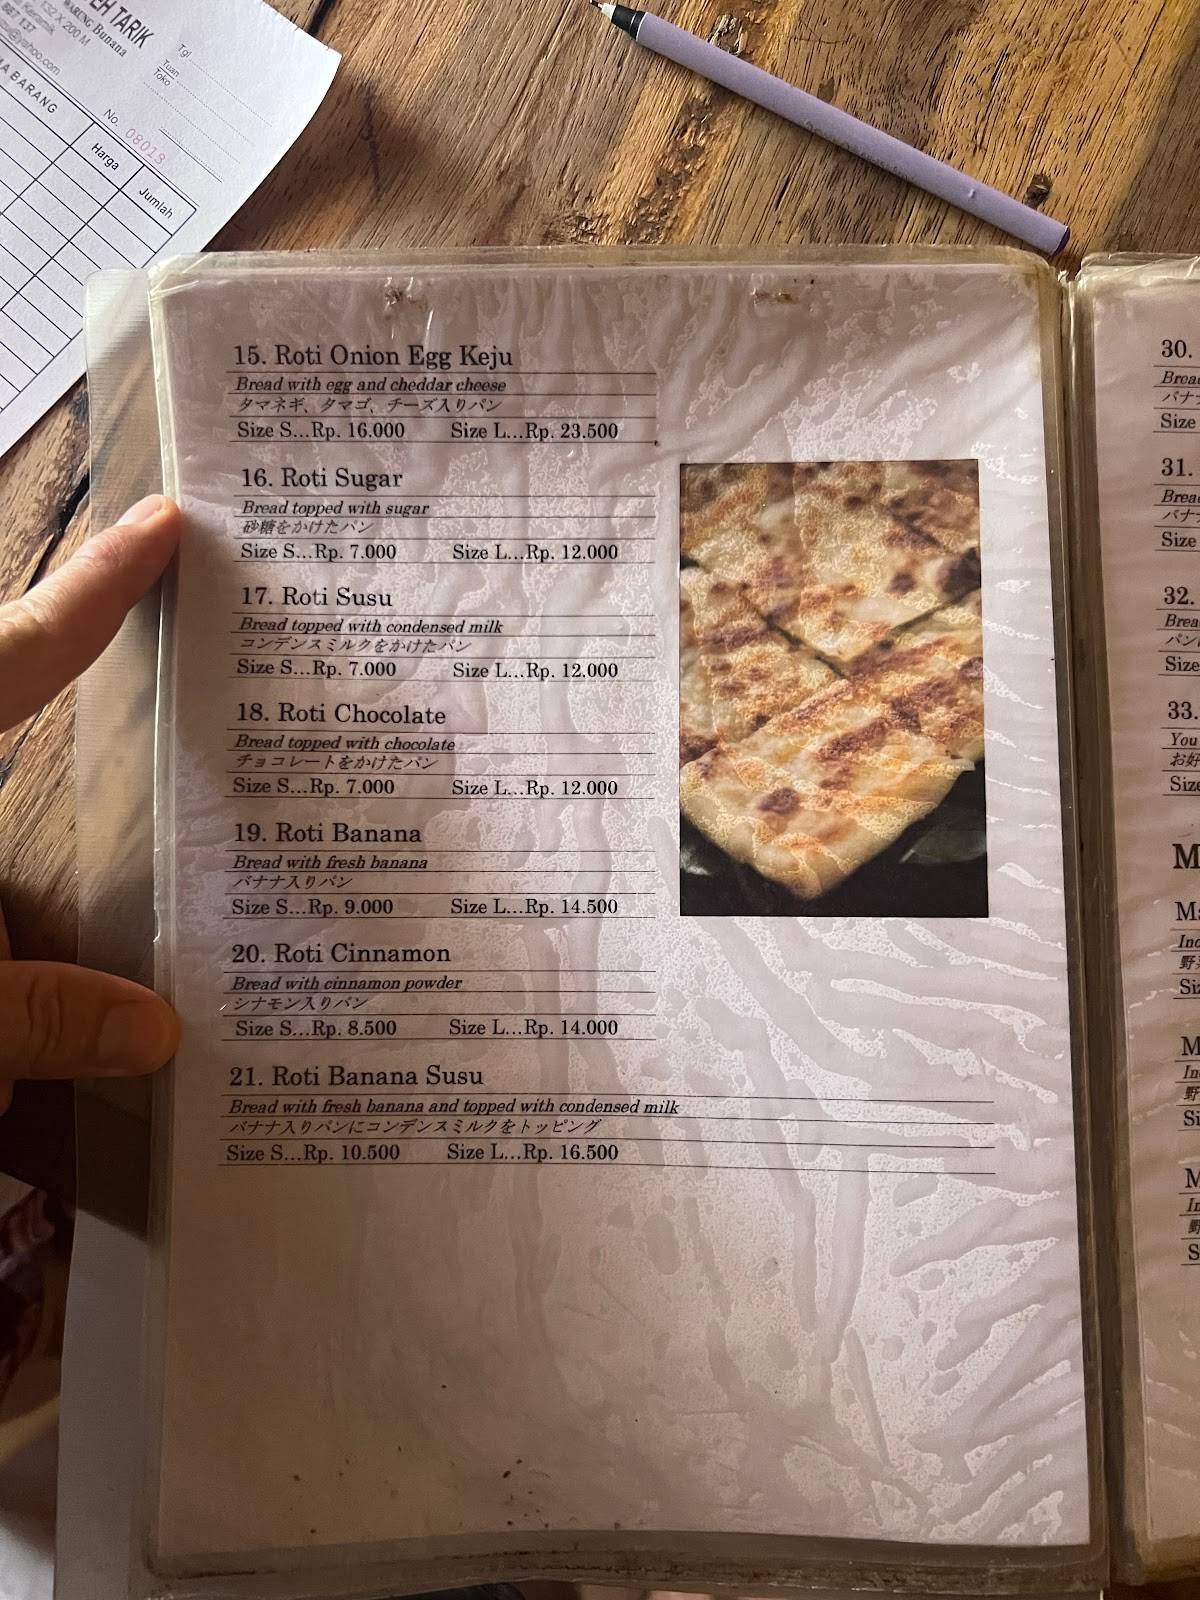 EH TARIK
WARUNG Bunana
132 X 200 M
BET 137
@yahoo.com
Tgl
Tuan
Toko
A BARANG
No. 08013
Harga
Jumlah
15. Roti Onion Egg Keju
Bread with egg and cheddar cheese
タマネギ、タマゴ、チーズ入りパン
Size S...Rp. 16.000 Size L...Rp. 23.500
16. Roti Sugar
Bread topped with sugar
砂糖をかけたパン
Size S...Rp. 7.000 Size L...Rp. 12.000
17. Roti Susu
Bread topped with condensed milk
コンデンスミルクをかけたパン
Size S...Rp. 7.000 Size L...Rp. 12.000
18. Roti Chocolate
Bread topped with chocolate
チョコレートをかけたパン
Size S...Rp. 7.000 Size L...Rp. 12.000
19. Roti Banana
Bread with fresh banana
バナナ入りパン
Size S...Rp. 9.000 Size L...Rp. 14.500
20. Roti Cinnamon
Bread with cinnamon powder
シナモン入りパン
Size S...Rp. 8.500 Size L...Rp. 14.000
21. Roti Banana Susu
Bread with fresh banana and topped with condensed milk
バナナ入りパンにコンデンスミルクをトッピング
Size S...Rp. 10.500 Size L...Rp. 16.500
30.
Brea
バナナ
Size
31.
Brea
バナ
Size
32.
Brea
パン
Size
33.
You
お好
Size
M
Ma
Ind
野菜
Siz
M
In
野
Si
M
In
野
S